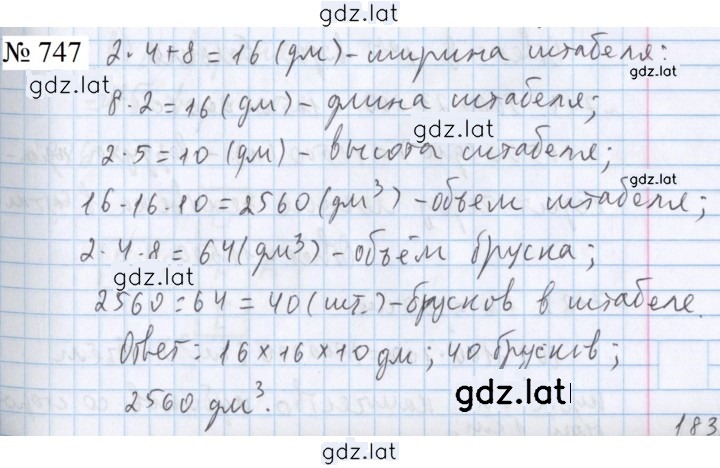 gdz.lat
№ 747 2·4+8=16(дм)-ширина штабеля:
gdz.lat gdz.lat
8·2=16(дм)-длина штабеля;
gdz.lat
2·5=10(дм)-высота штабеля;
gdz.lat
16·16·10=2560(дм³)-объем штабеля;
2·4·8=64(дм³)-объём бруска;
gdz.lat
2560:64=40(шт.)-брусков в штабеле.
Ответ: 16×16×10 дм; 40 брусков;
2560 дм³.
gdz.lat
183
gdz.lat